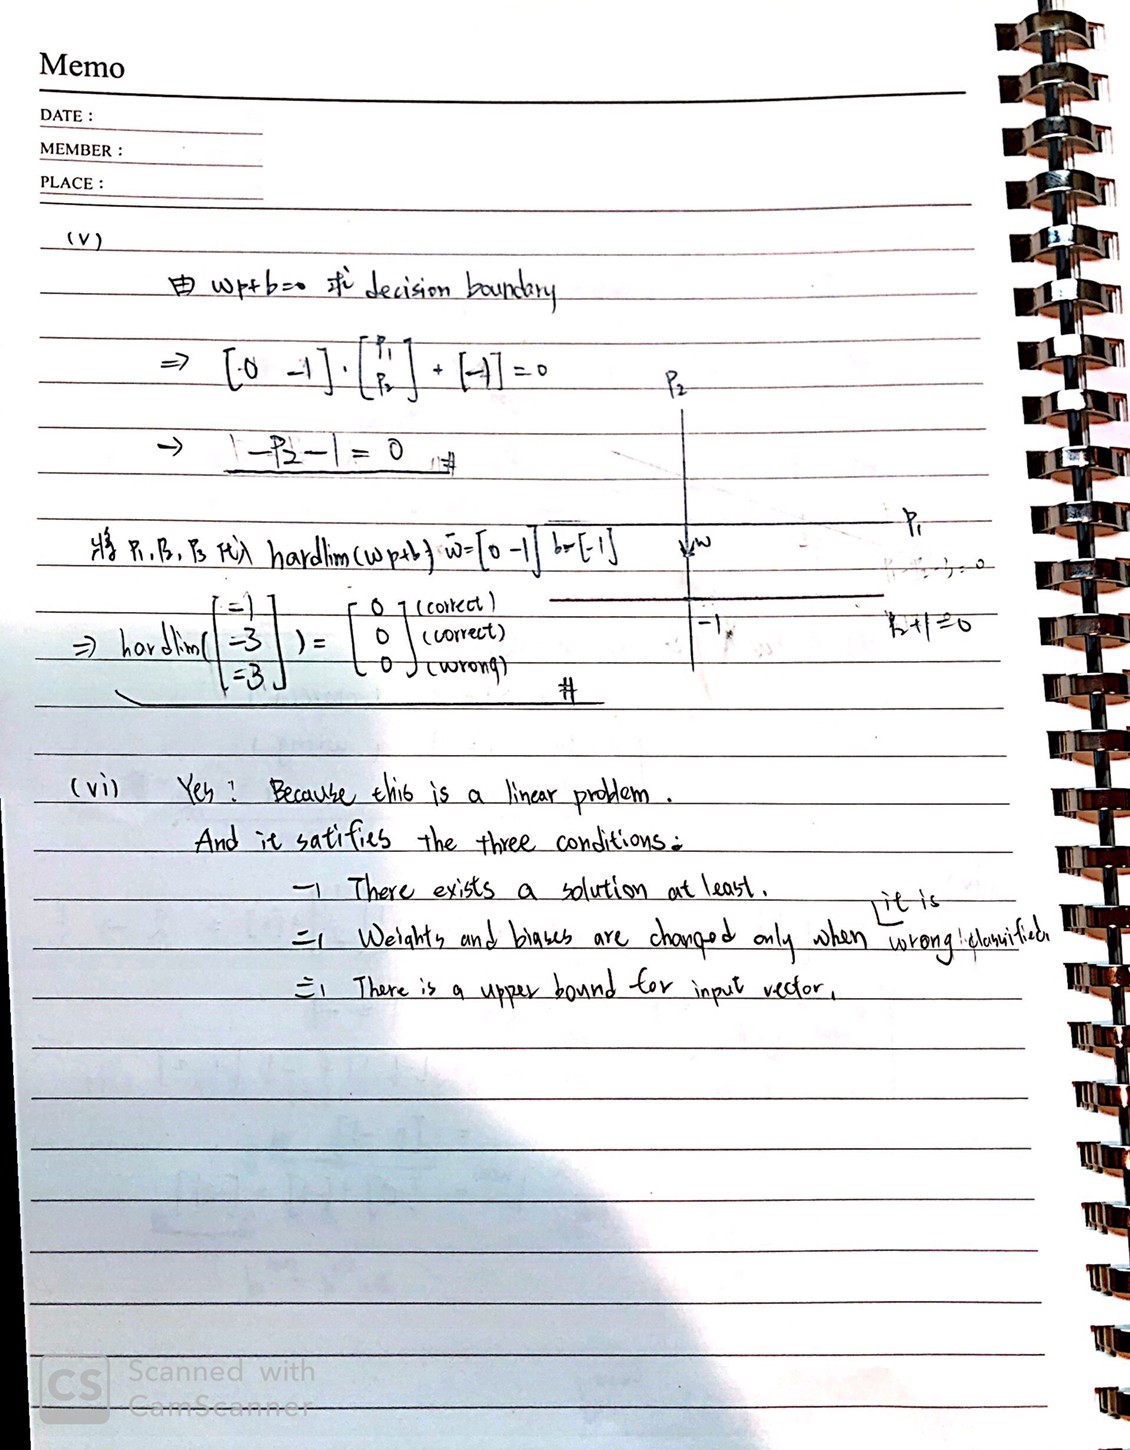 Memo
DATE :
MEMBER :
PLACE :
(v)
由 wp+b=0 求 decision boundary
⇒ [0 -1] · [P₁ P₂] + [-1] = 0
→ -P₂-1 = 0 #
P₂
P₁
w
-1
P₂+1=0
將 P₁, P₂, P₃ 代入 hardlim(wp+b) w=[0 -1] b=[-1]
⇒ hardlim([-1 -3 -3]) = [0 0 0] (correct) (correct) (wrong) #
(vi) Yes! Because this is a linear problem.
And it satifies the three conditions:
一、There exists a solution at least.
二、Weights and biases are changed only when it is wrong classified.
三、There is a upper bound for input vector.
CS Scanned with
CamScanner